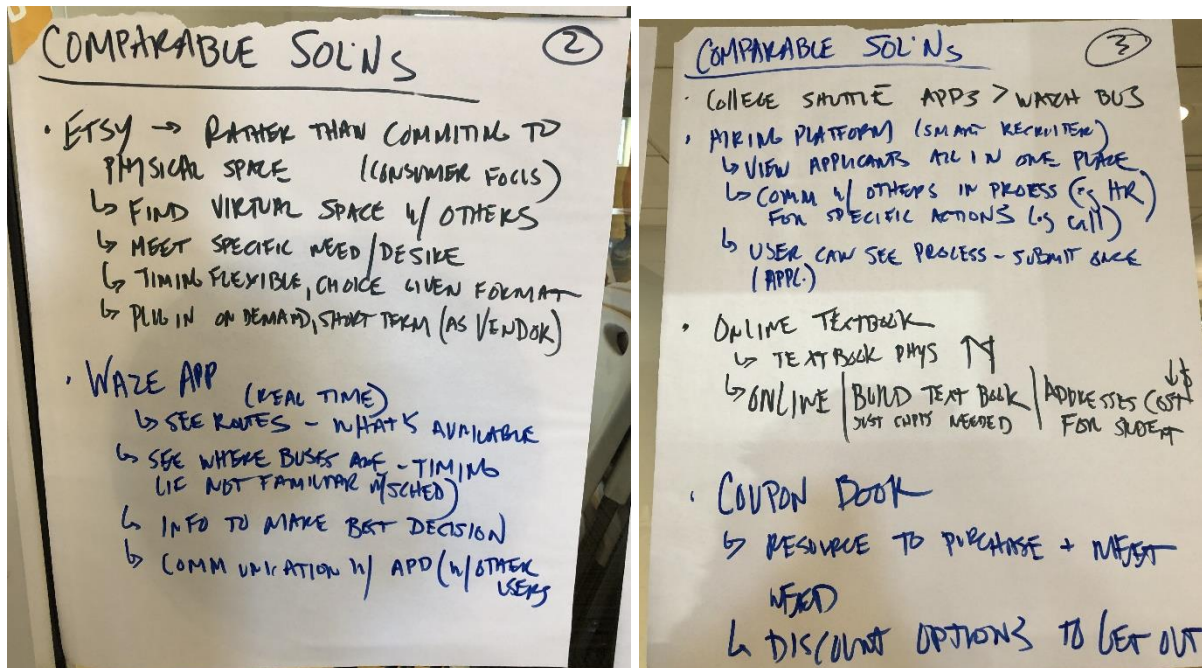 COMPARABLE SOL'NS
2
• ETSY → RATHER THAN COMMITING TO
PHYSICAL SPACE (CONSUMER FOCUS)
↳ FIND VIRTUAL SPACE W/ OTHERS
↳ MEET SPECIFIC NEED/DESIRE
↳ TIMING FLEXIBLE, CHOICE GIVEN FORMAT
↳ PLUG IN ON DEMAND, SHORT TERM (AS VENDOR)
• WAZE APP
(REAL TIME)
↳ SEE ROUTES - WHAT'S AVAILABLE
↳ SEE WHERE BUSES ARE - TIMING
(IF NOT FAMILIAR W/SCHED)
↳ INFO TO MAKE BEST DECISION
↳ COMMUNICATION W/ APP (W/OTHER
USERS
COMPARABLE SOL'NS
3
• COLLEGE SHUTTLE APPS > WATCH BUS
• HIRING PLATFORM (SMART RECRUITER)
↳ VIEW APPLICANTS ALL IN ONE PLACE
↳ COMM W/ OTHERS IN PROCESS (eg HR)
FOR SPECIFIC ACTIONS (eg call)
↳ USER CAN SEE PROCESS - SUBMIT ONCE
(APPL.)
• ONLINE TEXTBOOK
↳ TEXTBOOK PHYS
↳ ONLINE | BUILD TEXT BOOK | ADDRESSES COST ↓$
JUST CHPTS NEEDED | FOR STUDENT
• COUPON BOOK
↳ RESOURCE TO PURCHASE + MEET
NEED
↳ DISCOUNT OPTIONS TO GET OUT